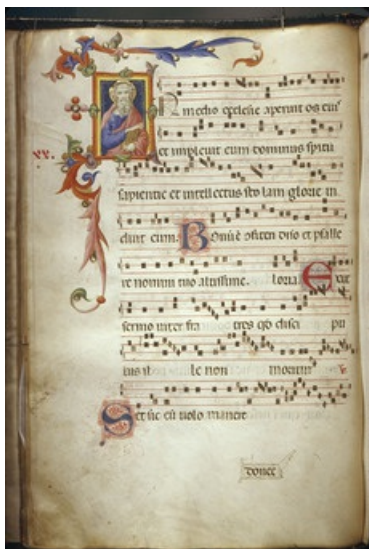 xx.
N medio ecclesie aperuit os eius
et impleuit eum dominus spiritu
sapientie et intellectus stolam glorie in
duit eum. Bonū ē ofiteri dño et psalle
re nomini tuo altissime. loria Exiit
sermo inter fra tres qd disci pu
lus il le non moritur
Set sic eū uolo manere
donec